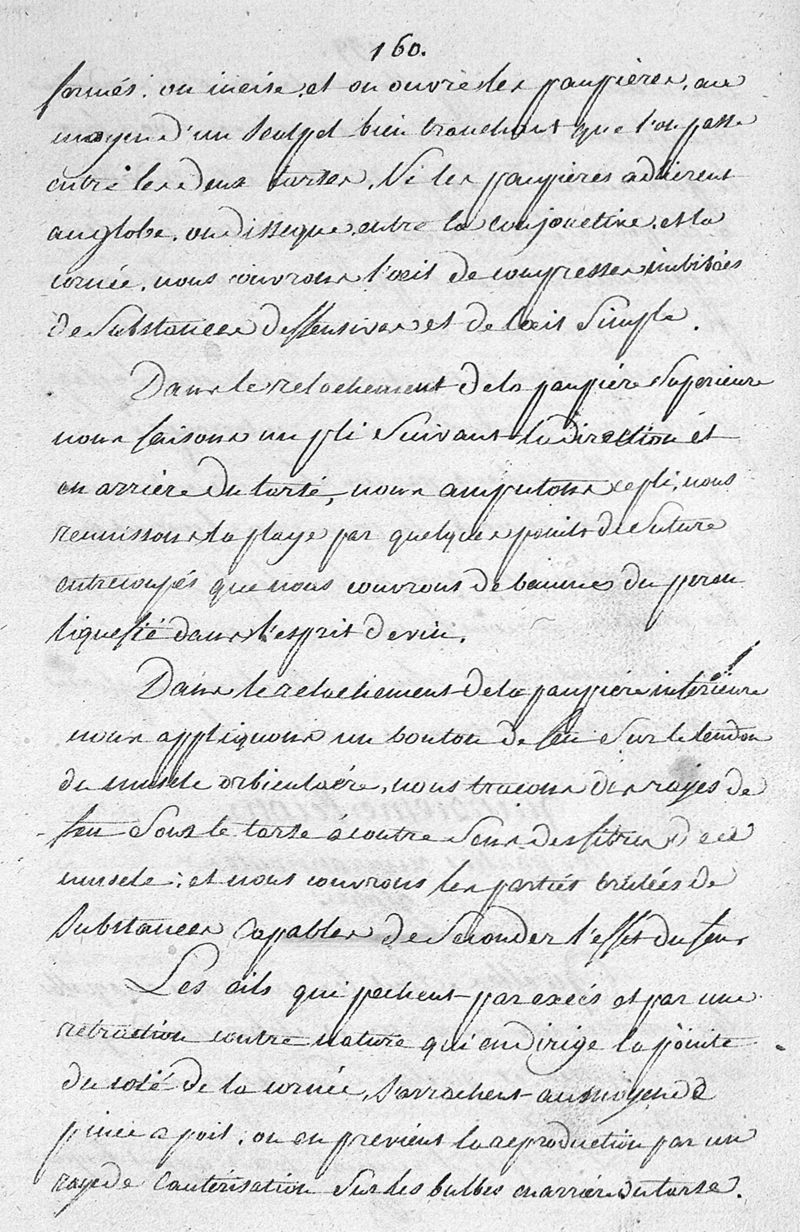 160.
formés. on incise, et on ouvre les paupières, au
moyen d'un scalpel bien tranchant que l'on passe
entre les deux tarses, Si les paupières adherent
au globe, on disseque, entre la conjonctive, et la
cornée, nous couvrons l'œil de compresses imbibées
de Substances deffensives et de l'œil Simple.
Dans le relachement de la paupière Superieure
nous faisons un pli Suivant la direction et
en arrière du tarse, nous amputons ce pli, nous
reunissons la playe par quelques points de Suture
entrecoupés que nous couvrons de baume du perou
liquefié dans l'esprit de vin.
Dans le relachement de la paupière inférieure
nous appliquons un bouton de feu Sur le tendon
du muscle orbiculaire, nous traçons des rayes de
feu Sous le tarse à contre Sens des fibres de ce
muscle; et nous couvrons les parties brulées de
Substances Capables de Seconder l'effet du feu.
Les cils qui pechent par excés et par une
retraction contre nature qui en dirige la pointe
du coté de la cornée, S'arrachent au moyen de
pince a poil, on en previent la reproduction par un
raye de Cauterisation Sur les bulbes en arrière du tarse.